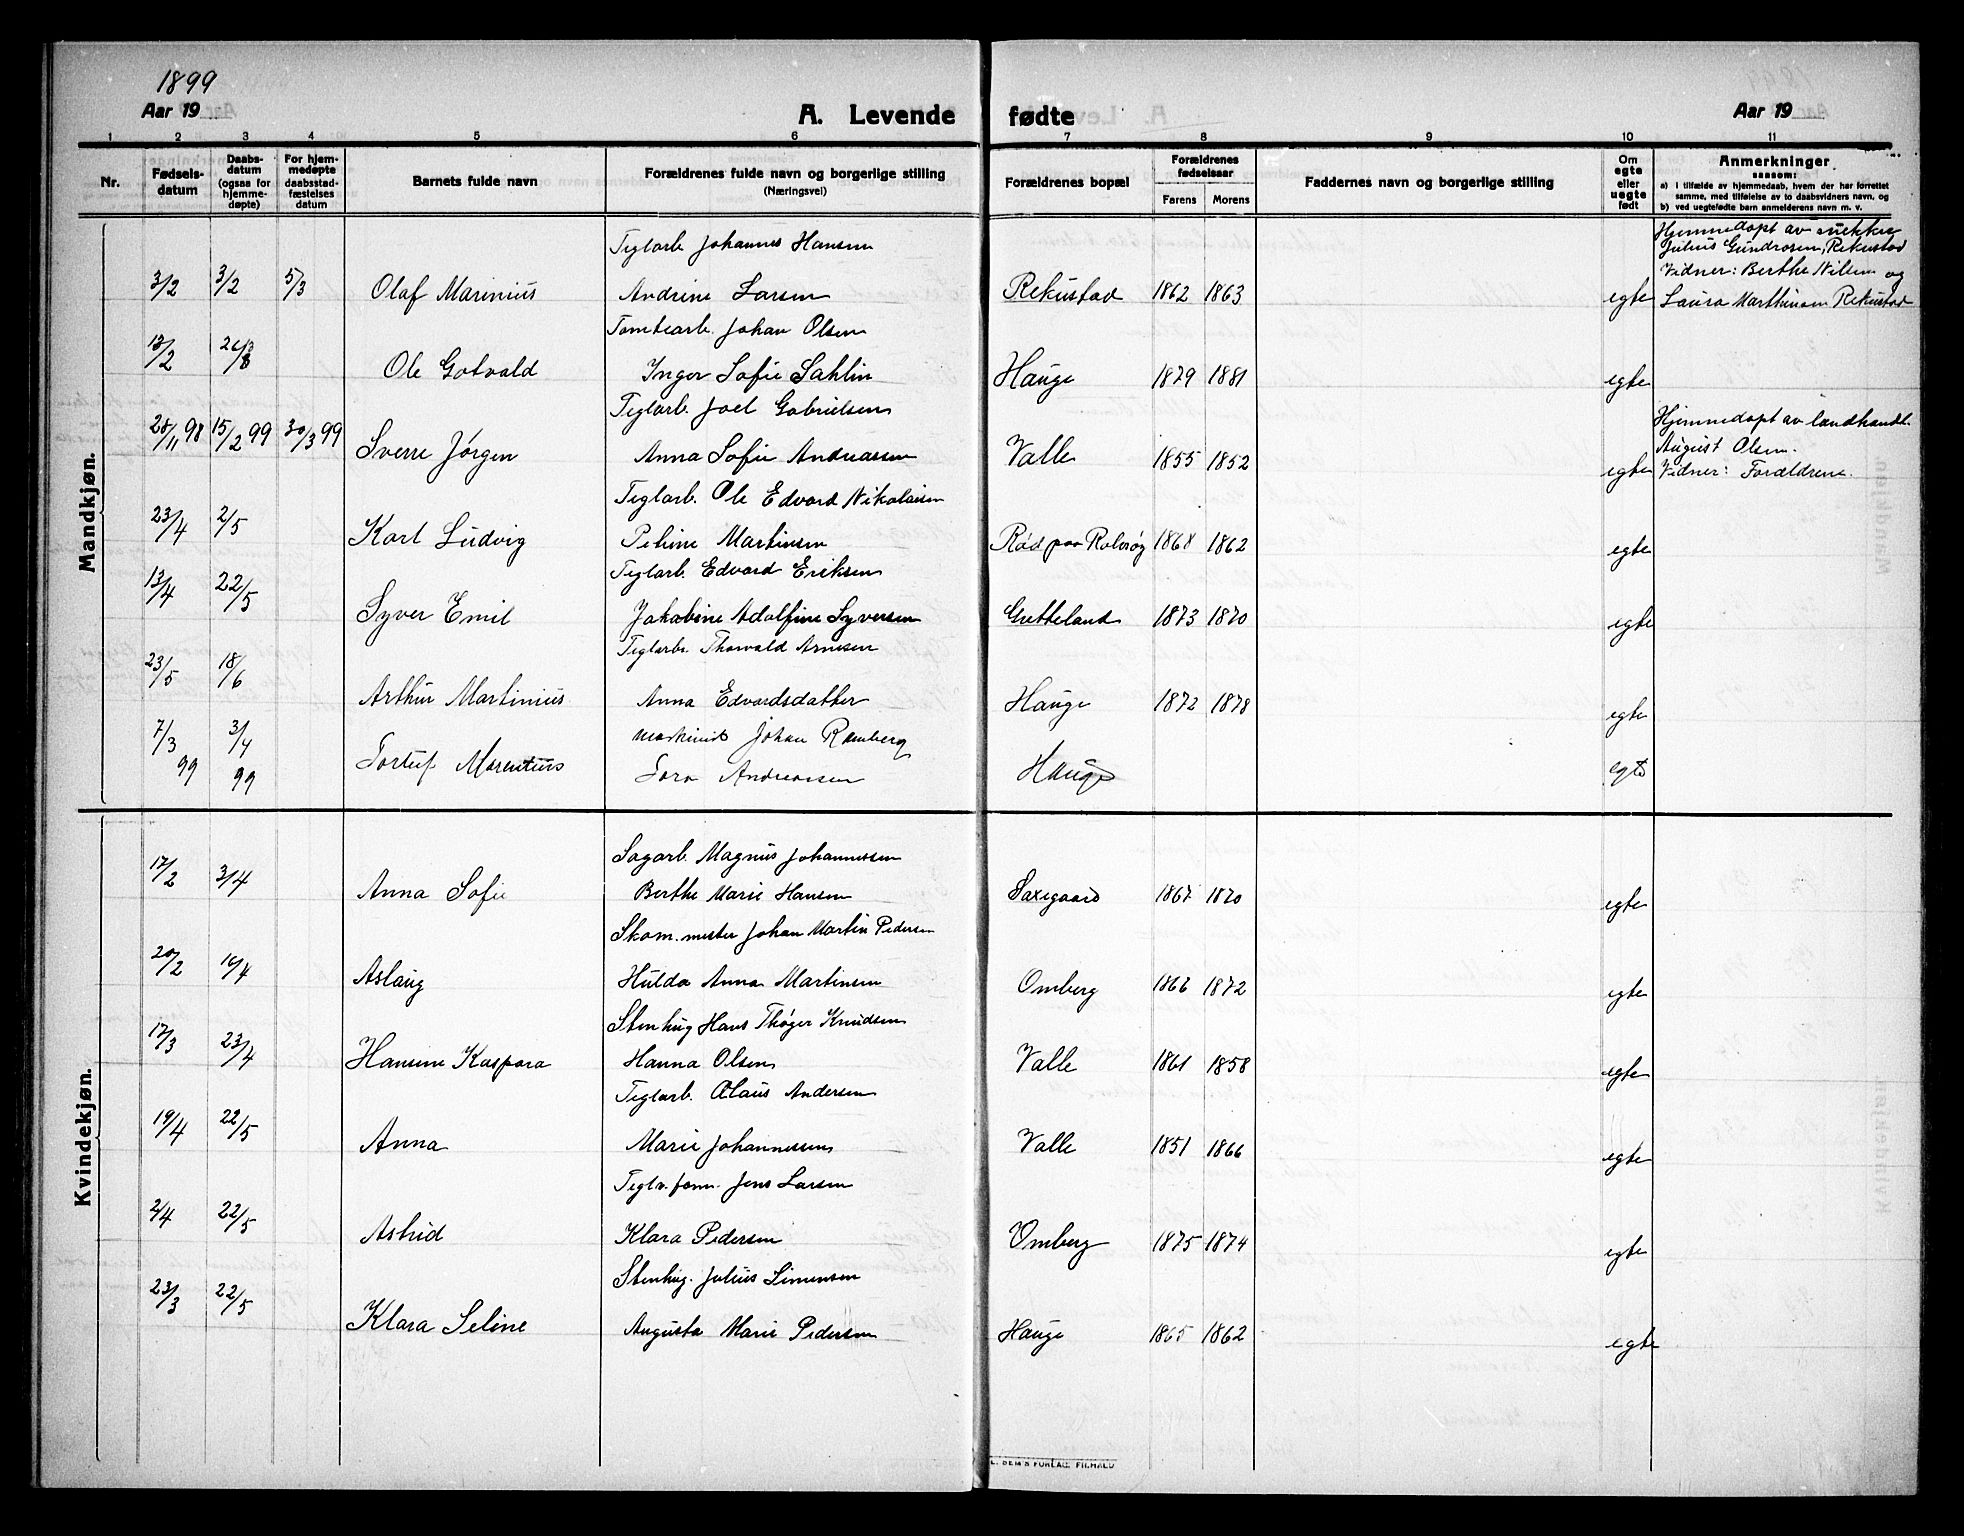 1899
Aar 19
A. Levende fødte
Aar 19
1 2 3 4 5 6 7 8 9 10 11
Nr.
Fødsels-
datum
Daabs-
datum
(ogsaa for
hjemme-
døpte)
For hjem-
medøpte
daabsstad-
fæstelses
datum
Barnets fulde navn
Forældrenes fulde navn og borgerlige stilling
(Næringsvei)
Forældrenes bopæl
Forældrenes
fødselsaar
Farens Morens
Faddernes navn og borgerlige stilling
Om
egte
eller
uegte
født
Anmerkninger
saasom:
a) i tilfælde av hjemmedaab, hvem der har forrettet
samme, med tilføielse av to daabsvidners navn, og
b) ved uegtefødte barn anmelderens navn m. v.
Mandkjøn.
Teglarb. Johannes Hansen
3/2 3/2 5/3 Olaf Marinius Andrine Larsen Rekustad 1862 1863 egte
Hjemmedøpt av
Julius Gundrosen, Rekustad
Vidner: Berthe Nilsen og
Laura Marthinsen Rekustad
Tomtearb. Johan Olsen
13/2 26/3 Ole Gotvald Inger Sofie Sahlin Hauge 1879 1881 egte
Teglarb. Joel Gabrielsen
28/11 98 15/2 99 30/3 99 Sverre Jörgen Anna Sofie Andreassen Valle 1855 1852 egte
Hjemmedøpt av landhandl.
August Olsen.
Vidner: Forældrene.
Teglarb. Ole Edvard Nikolaisen
23/4 2/5 Karl Ludvig Petrine Martinsen Rød paa Rolvsøy 1868 1862 egte
Teglarb. Edvard Eriksen
13/4 22/5 Syver Emil Jakobine Adolfine Syversen Gretteland 1873 1870 egte
Teglarb. Thorvald Arnesen
23/5 18/6 Arthur Martinius Anna Edvardsdatter Hauge 1872 1878 egte
maskinist Johan Ramberg
7/3 99 3/4 99 Tortuf Marentius Tora Andreassen Hauge egte
Kvindekjøn.
Sagarb. Magnus Johannessen
17/2 3/4 Anna Sofie Berthe Marie Hansen Saxegaard 1867 1870 egte
Skom.mester Johan Martin Pedersen
20/2 16/4 Aslaug Hulda Anna Martinsen Omberg 1866 1872 egte
Stenhug Hans Thøger Knudsen
17/3 23/4 Hansine Kaspara Hanna Olsen Valle 1861 1858 egte
Teglarb. Olaus Andersen
19/4 22/5 Anna Marie Johannessen Valle 1851 1866 egte
Teglv.form. Jens Larsen
2/4 22/5 Astrid Klara Pedersen Omberg 1875 1874 egte
Stenhug. Julius Simensen
23/3 22/5 Klara Seline Augusta Marie Pedersen Hauge 1865 1862 egte
SEM'S FORLAG, FR.HALD